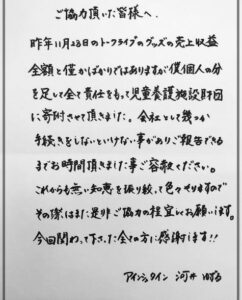 ご協力頂いた皆様へ
昨年11月23日のトークライブのグッズの売上収益
全額と僅かばかりではありますが僕個人の分
を足して全て責任をもって児童養護施設財団
に寄付させて頂きました。会社として幾つか
手続きをしないといけない事がありご報告できる
までお時間頂きました事ご容赦ください。
これからも無い知恵を振り絞って色々やりますので
その際はまた是非ご協力の程宜しくお願いします。
今回関わって下さった全ての方に感謝します!!
アインシュタイン 河井 ゆずる